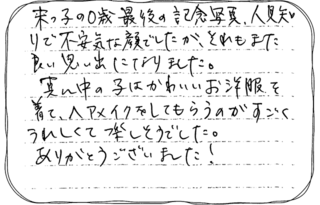 末っ子の0歳最後の記念写真、人見知
りで不安気な顔でしたが、それもまた
良い思い出になりました。
真ん中の子はかわいいお洋服を
着て、ヘアメイクをしてもらうのがすごく
うれしくて楽しそうでした。
ありがとうございました!